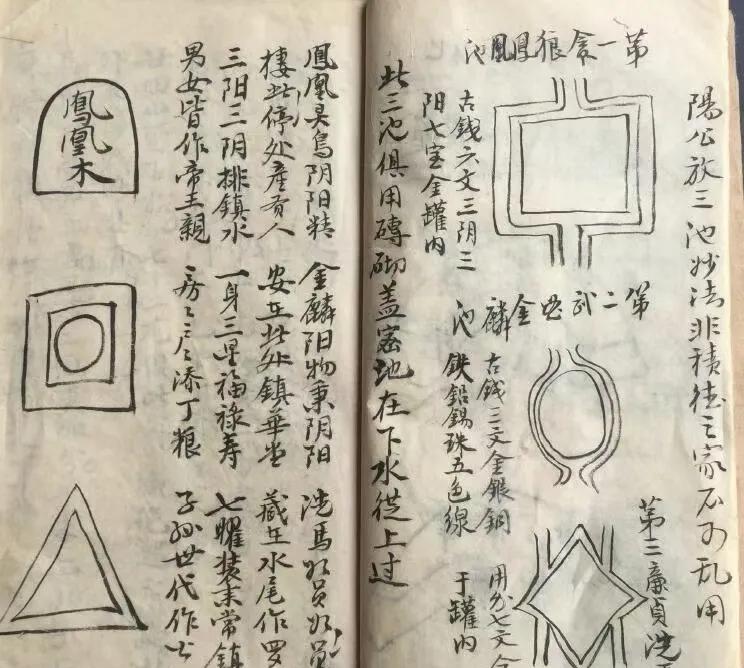 陽公放三池妙法非積德之家不可乱用
第一贪狼鳳凰池
古錢六文三阴三
阳七宝金罐内
第二武曲金麟池
古錢三文金銀銅
鉄鉛錫珠五色線
第三廉貞洗
用 七文金
于罐内
此三池俱用磚砌盖密地在下水從上过
鳳凰灵鳥阴阳精
棲此停处產贵人
三阳三阴排鎮水
男女皆作帝王親
鳳凰木
金麟阳物秉阴阳
安在此处鎮華堂
一身三星福禄寿
房〻户〻添丁粮
洗馬 員 員
藏在水尾作罗
七曜装末常鎮
子孙世代作